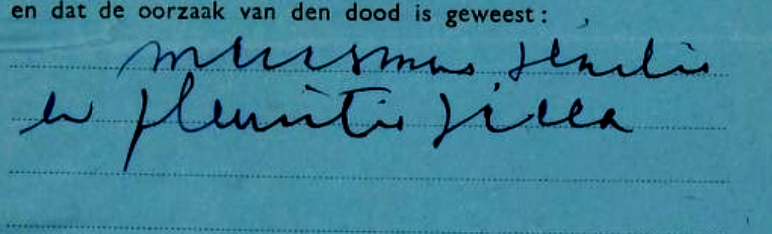 en dat de oorzaak van den dood is geweest:
marasmus senilis
en pleuritis sicca